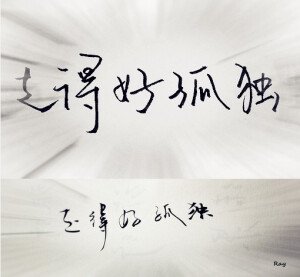 走得好孤独
走得好孤独
Ray